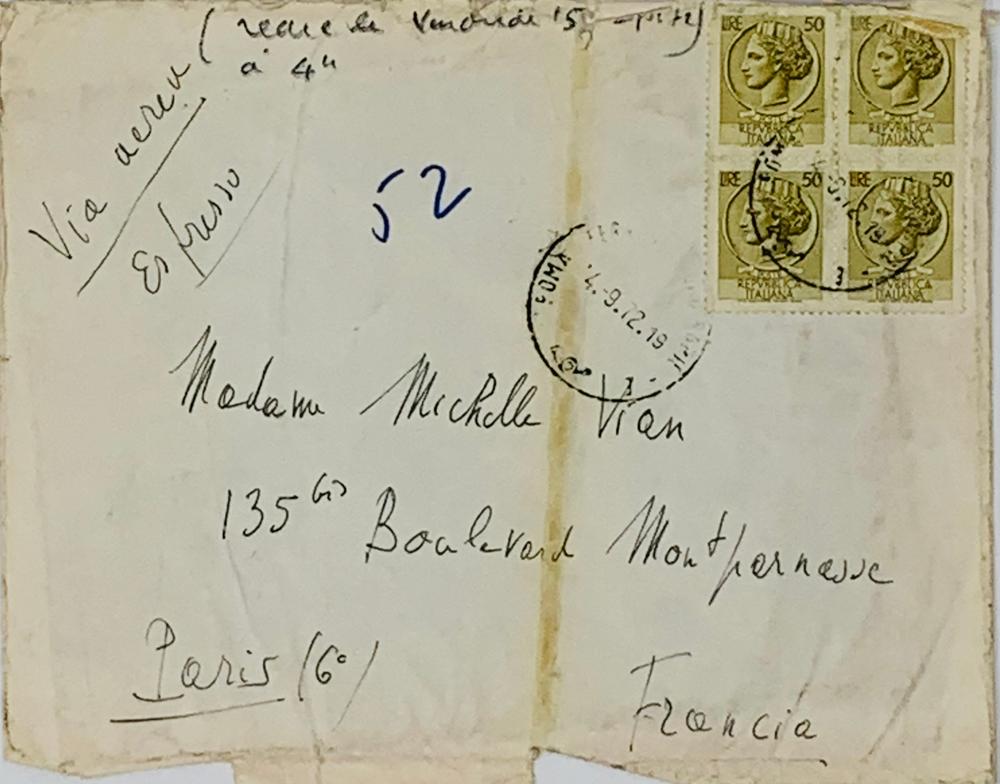 (reçue le Vendredi 15
à 4h
Via aerea
Espresso
52
LIRE 50
LIRE
REPVBBLICA
ITALIANA
REPVBBLICA
ITALIANA
LIRE 50
LIRE 50
REPVBBLICA
ITALIANA
REPVBBLICA
ITALIANA
ROMA
4.-9.72.19
3
Madame Michelle Vian
135 bis Boulevard Montparnasse
Paris (6°)
Francia